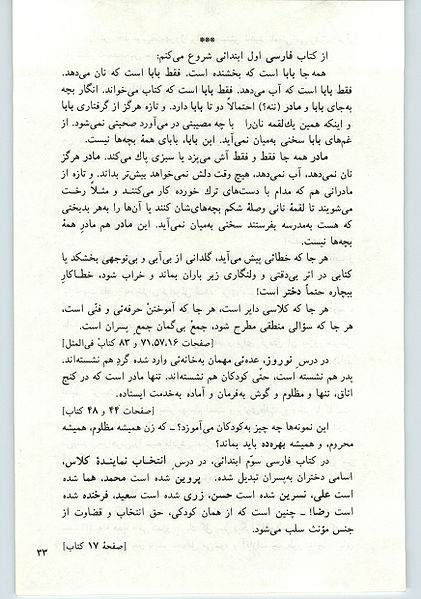 ***
از کتاب فارسی اول ابتدائی شروع می‌کنم:
همه جا بابا است که بخشنده است. فقط بابا است که نان می‌دهد.
فقط بابا است که آب می‌دهد. فقط بابا است که کتاب می‌خواند. انگار بچه
به‌جای بابا و مادر (ننه؟) احتمالاً دو تا بابا دارد. و تازه هرگز از گرفتاری بابا
و اینکه همین یك‌لقمه نان‌را با چه مصیبتی در می‌آورد صحبتی نمی‌شود. از
غم‌های بابا سخنی به‌میان نمی‌آید. این بابا، بابای همهٔ بچه‌ها نیست.
مادر همه جا فقط و فقط آش می‌پزد یا سبزی پاك می‌کند. مادر هرگز
نان نمی‌دهد، آب نمی‌دهد، هیچ وقت دلش نمی‌خواهد بیش‌تر بداند. و تازه از
مادرانی هم که مدام با دست‌های ترك خورده کار می‌کنند و مثلاً رخت
می‌شویند تا لقمهٔ نانی وصلهٔ شکم بچه‌های‌شان کنند یا آن‌ها را به‌هر بدبختی
که هست به‌مدرسه بفرستند سخنی به‌میان نمی‌آید. این مادر هم مادرِ همهٔ
بچه‌ها نیست.
هر جا که خطائی پیش می‌آید، گلدانی از بی‌آبی و بی‌توجهی بخشکد یا
کتابی در اثر بی‌دقتی و ولنگاری زیر باران بماند و خراب شود، خطـاکارِ
بیچاره حتماً دختر است!
هر جا که کلاسی دایر است، هر جا که آموختنْ حرفه‌ئی و فنّی است،
هر جا که سؤالی منطقی مطرح شود، جمعْ بی‌گمان جمع ِ پسران است.
[صفحات ۷۱،۵۷،۱۶ و ۸۳ کتابْ فی‌المثل]
در درس ِ نوروز، عده‌ئی مهمان به‌خانه‌ئی وارد شده گردِ هم نشسته‌اند.
پدر هم نشسته است، حتّی کودکان هم نشسته‌اند. تنها مادر است که در کنج
اتاق، تنها و مظلوم و گوش به‌فرمان و آماده به‌خدمت ایستاده.
[صفحات ۴۴ و ۴۸ کتاب]
این نمونه‌ها چه چیز به‌کودکان می‌آموزد؟ ـ که زن همیشه مظلوم، همیشه
محروم، و همیشه بهره‌ده باید بماند؟
در کتاب فارسی سوّم ابتدائی، در درس ِ انتخاب نمایندهٔ کلاس،
اسامی دختران به‌پسران تبدیل شده. پروین شده است محمد، هما شده
است علی، نسرین شده است حسن، زری شده است سعید، فرخنده شده
است رضا! ـ چنین است که از همان کودکی، حق انتخاب و قضاوت از
جنس مؤنث سلب می‌شود.
[صفحهٔ ۱۷ کتاب]
۳۳